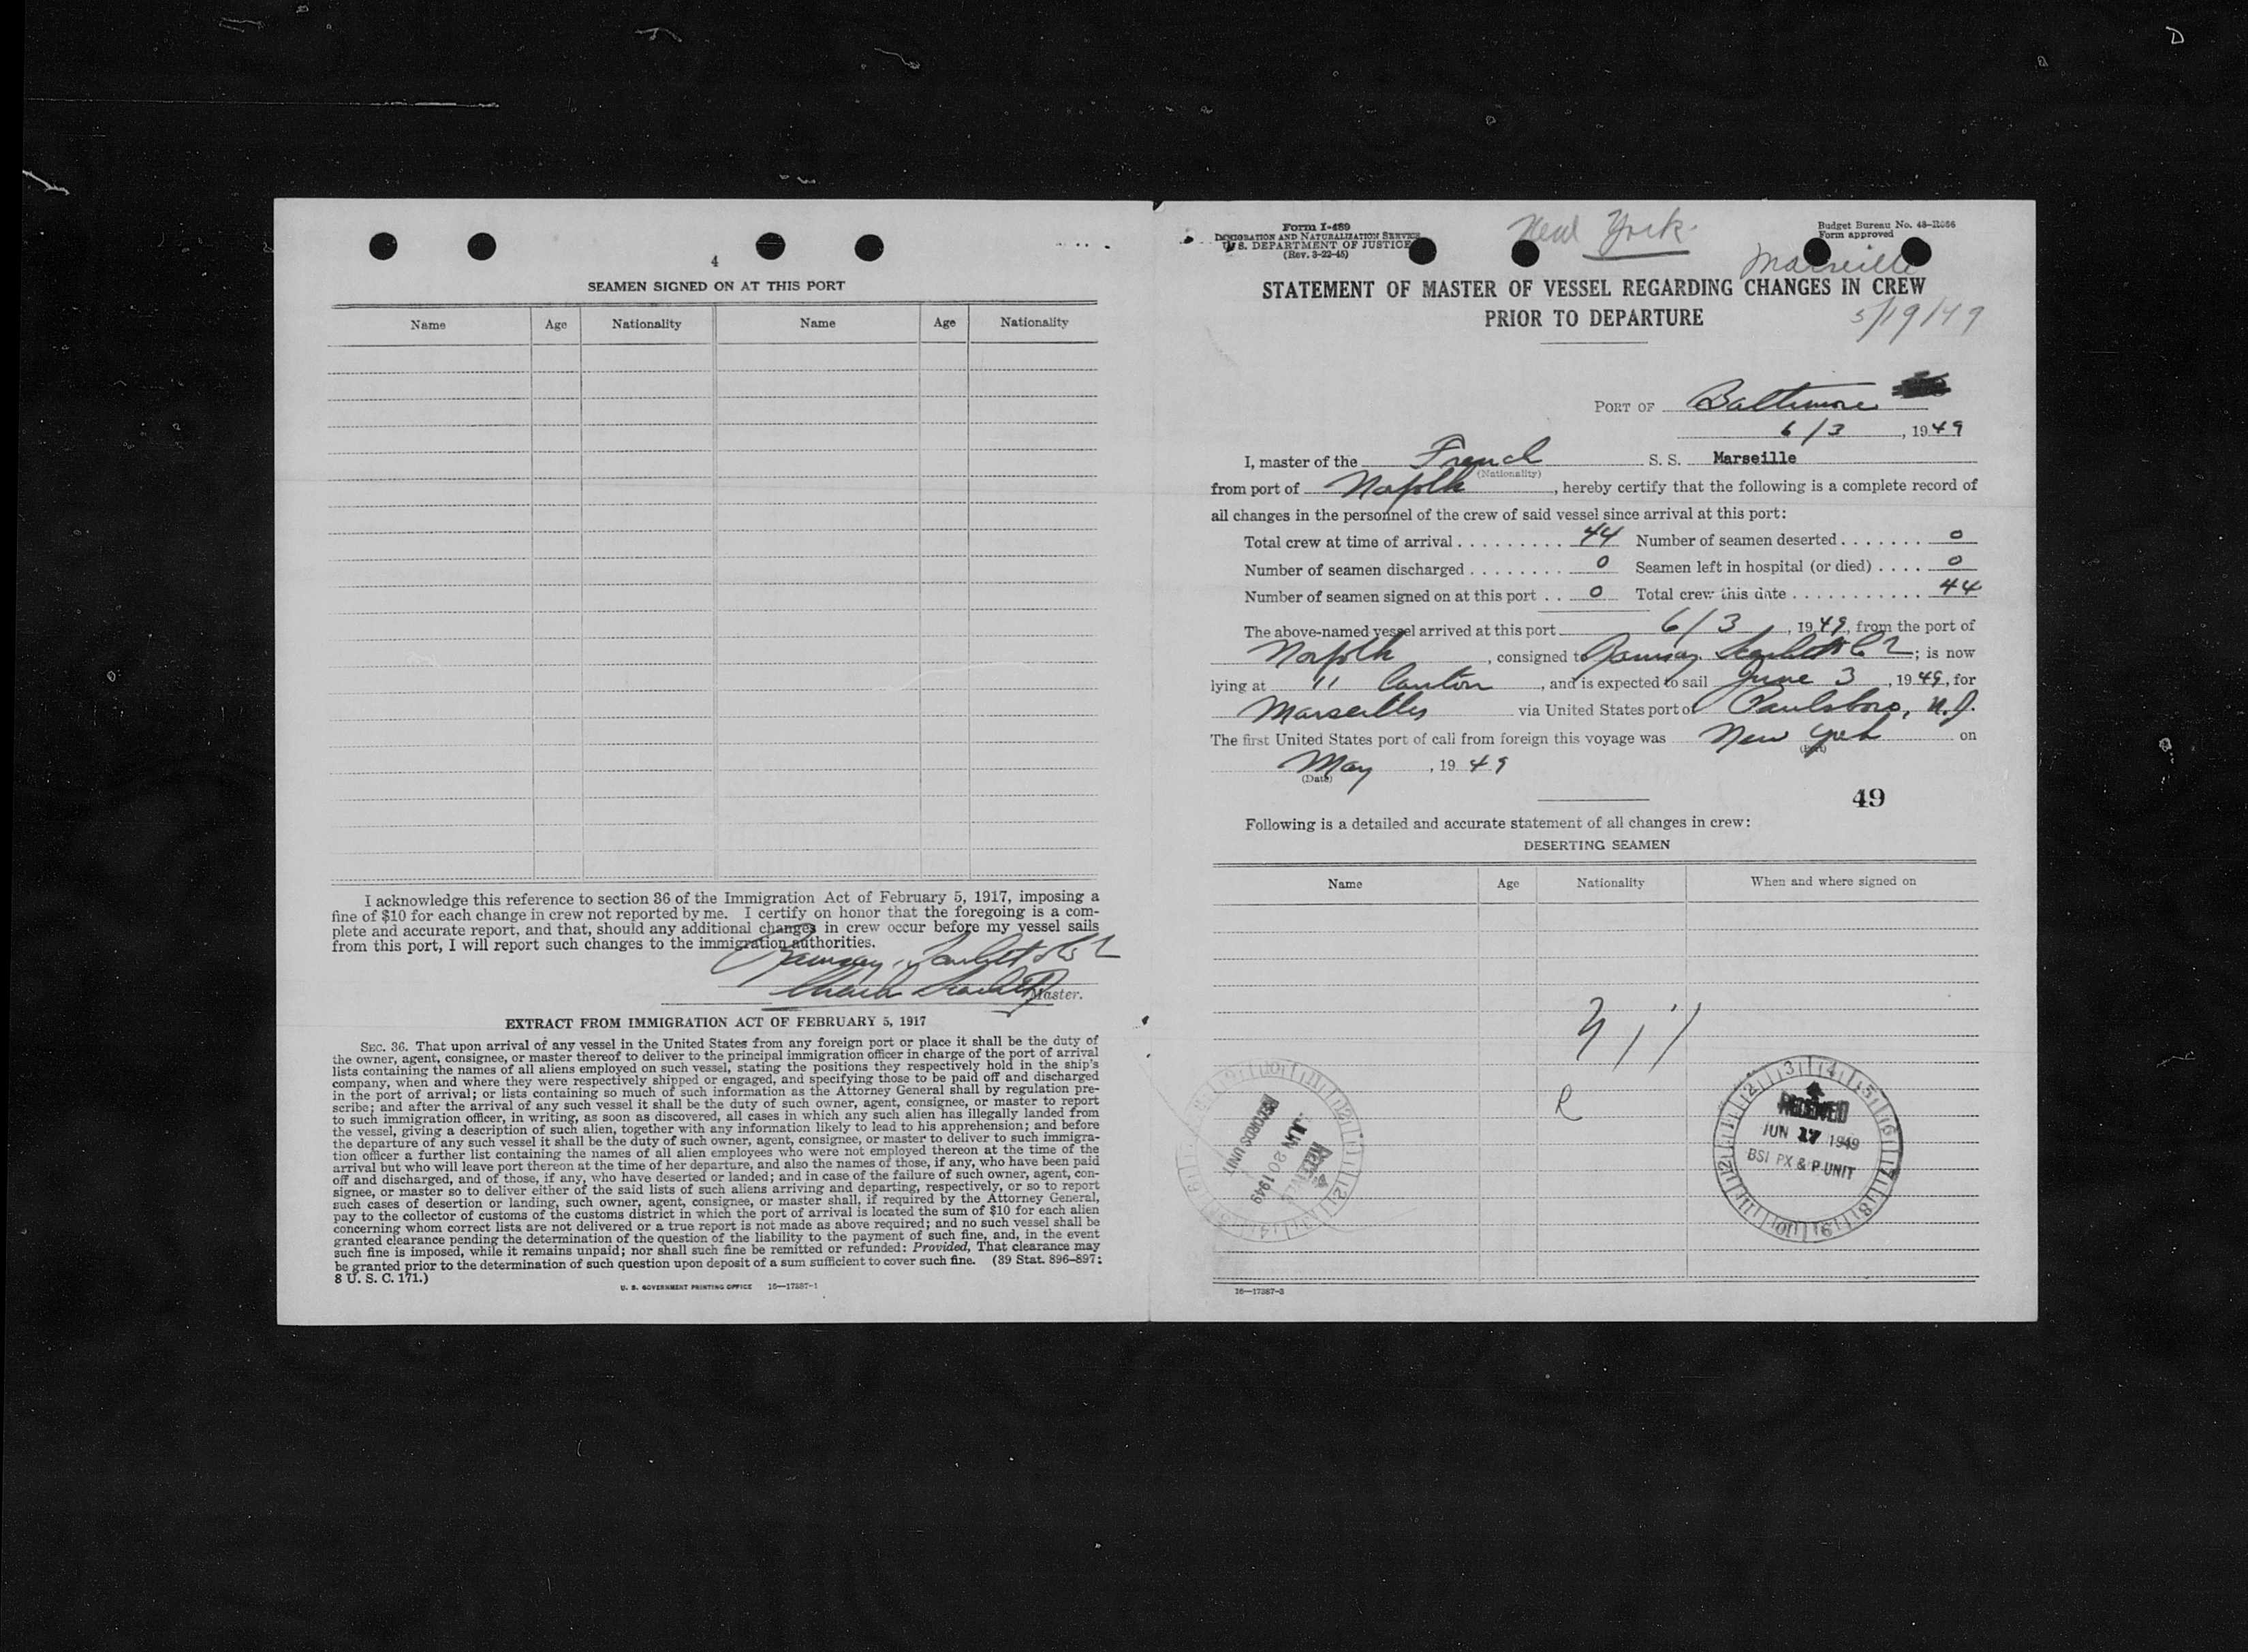 4
SEAMEN SIGNED ON AT THIS PORT
Name Age Nationality Name Age Nationality
I acknowledge this reference to section 36 of the Immigration Act of February 5, 1917, imposing a
fine of $10 for each change in crew not reported by me. I certify on honor that the foregoing is a com-
plete and accurate report, and that, should any additional changes in crew occur before my vessel sails
from this port, I will report such changes to the immigration authorities.
Master.
EXTRACT FROM IMMIGRATION ACT OF FEBRUARY 5, 1917
SEC. 36. That upon arrival of any vessel in the United States from any foreign port or place it shall be the duty of
the owner, agent, consignee, or master thereof to deliver to the principal immigration officer in charge of the port of arrival
lists containing the names of all aliens employed on such vessel, stating the positions they respectively hold in the ship's
company, when and where they were respectively shipped or engaged, and specifying those to be paid off and discharged
in the port of arrival; or lists containing so much of such information as the Attorney General shall by regulation pre-
scribe; and after the arrival of any such vessel it shall be the duty of such owner, agent, consignee, or master to report
to such immigration officer, in writing, as soon as discovered, all cases in which any such alien has illegally landed from
the vessel, giving a description of such alien, together with any information likely to lead to his apprehension; and before
the departure of any such vessel it shall be the duty of such owner, agent, consignee, or master to deliver to such immigra-
tion officer a further list containing the names of all alien employees who were not employed thereon at the time of the
arrival but who will leave port thereon at the time of her departure, and also the names of those, if any, who have been paid
off and discharged, and of those, if any, who have deserted or landed; and in case of the failure of such owner, agent, con-
signee, or master so to deliver either of the said lists of such aliens arriving and departing, respectively, or so to report
such cases of desertion or landing, such owner, agent, consignee, or master shall, if required by the Attorney General,
pay to the collector of customs of the customs district in which the port of arrival is located the sum of $10 for each alien
concerning whom correct lists are not delivered or a true report is not made as above required; and no such vessel shall be
granted clearance pending the determination of the question of the liability to the payment of such fine, and, in the event
such fine is imposed, while it remains unpaid; nor shall such fine be remitted or refunded: Provided, That clearance may
be granted prior to the determination of such question upon deposit of a sum sufficient to cover such fine. (39 Stat. 896–897;
8 U. S. C. 171.)
U. S. GOVERNMENT PRINTING OFFICE 16—17387-1
Form I-489
IMMIGRATION AND NATURALIZATION SERVICE
U. S. DEPARTMENT OF JUSTICE
(Rev. 3-22-45)
New York
Budget Bureau No. 43-R366
Form approved
Marseille
STATEMENT OF MASTER OF VESSEL REGARDING CHANGES IN CREW
PRIOR TO DEPARTURE
5/19/49
PORT OF Baltimore
6/3, 1949
I, master of the French S. S. Marseille
(Nationality)
from port of Norfolk, hereby certify that the following is a complete record of
all changes in the personnel of the crew of said vessel since arrival at this port:
Total crew at time of arrival 44 Number of seamen deserted 0
Number of seamen discharged 0 Seamen left in hospital (or died) 0
Number of seamen signed on at this port 0 Total crew this date 44
The above-named vessel arrived at this port 6/3, 1949, from the port of
Norfolk, consigned to Ramsay Scarlett & Co; is now
lying at " Canton, and is expected to sail June 3, 1949, for
Marseilles via United States port of Paulsboro, N.J.
The first United States port of call from foreign this voyage was New York on
(Port)
May, 1949
(Date)
49
Following is a detailed and accurate statement of all changes in crew:
DESERTING SEAMEN
Name Age Nationality When and where signed on
Nil
RECEIVED
JUN 20 1949
RECORDS UNIT
RECEIVED
JUN 17 1949
BSI PX & P UNIT
16—17387-3